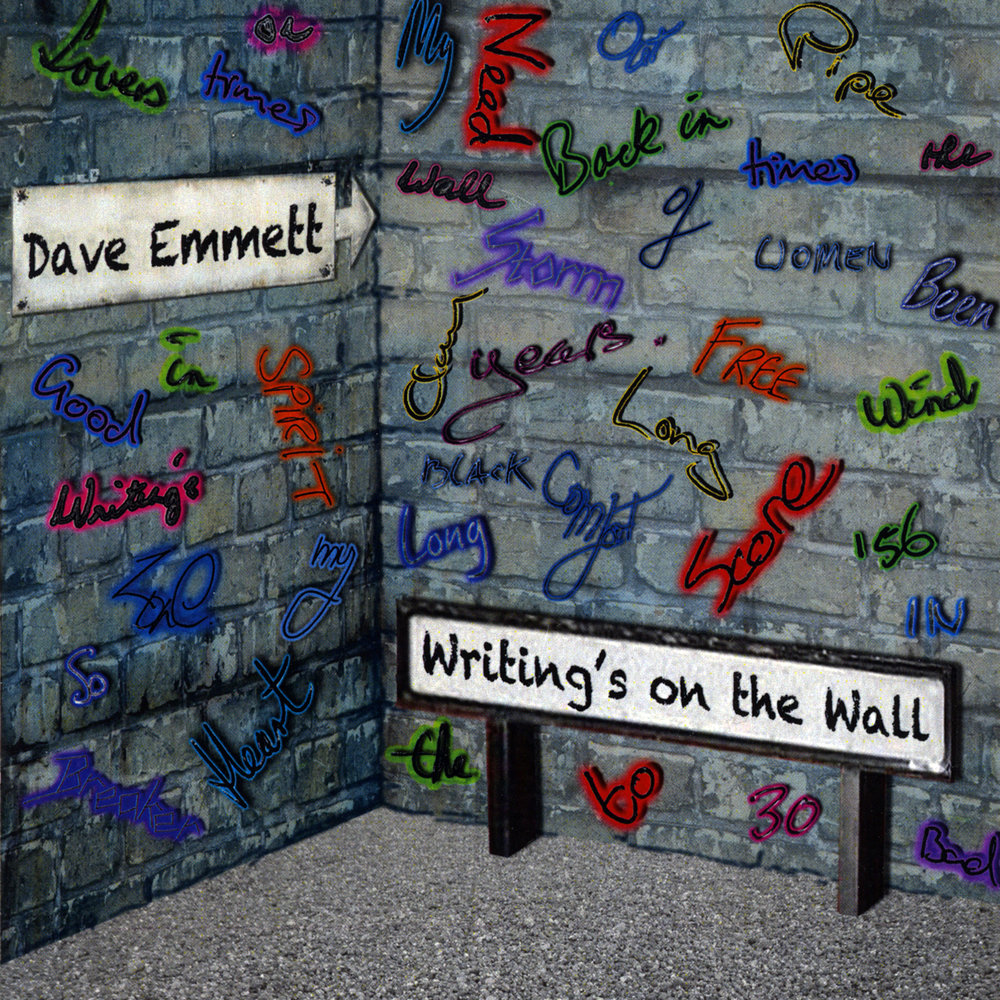 Lovers
on
times
My
Need
Out
Pipe
Back in
times
the
Wall
of
Storm
WOMEN
Been
Dave Emmett
in
Good
SPIRIT
Our
years.
FREE
Long
Wind
Writing's
BLACK
Comfort
Score
Long
156
Zone
my
IN
So
Heart
Writing's on the Wall
Breaker
the
to
30
Bad